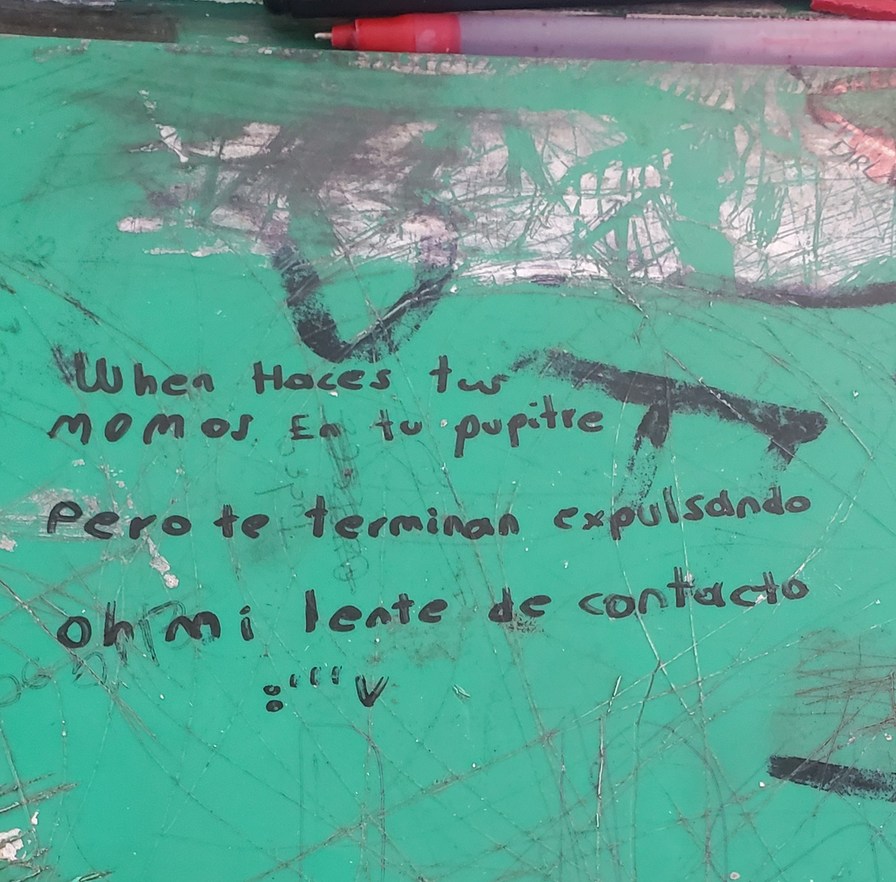 When Haces tus
MOMOS En tu pupitre
Pero te terminan expulsando
Oh mi lente de contacto
:''''v
DRL